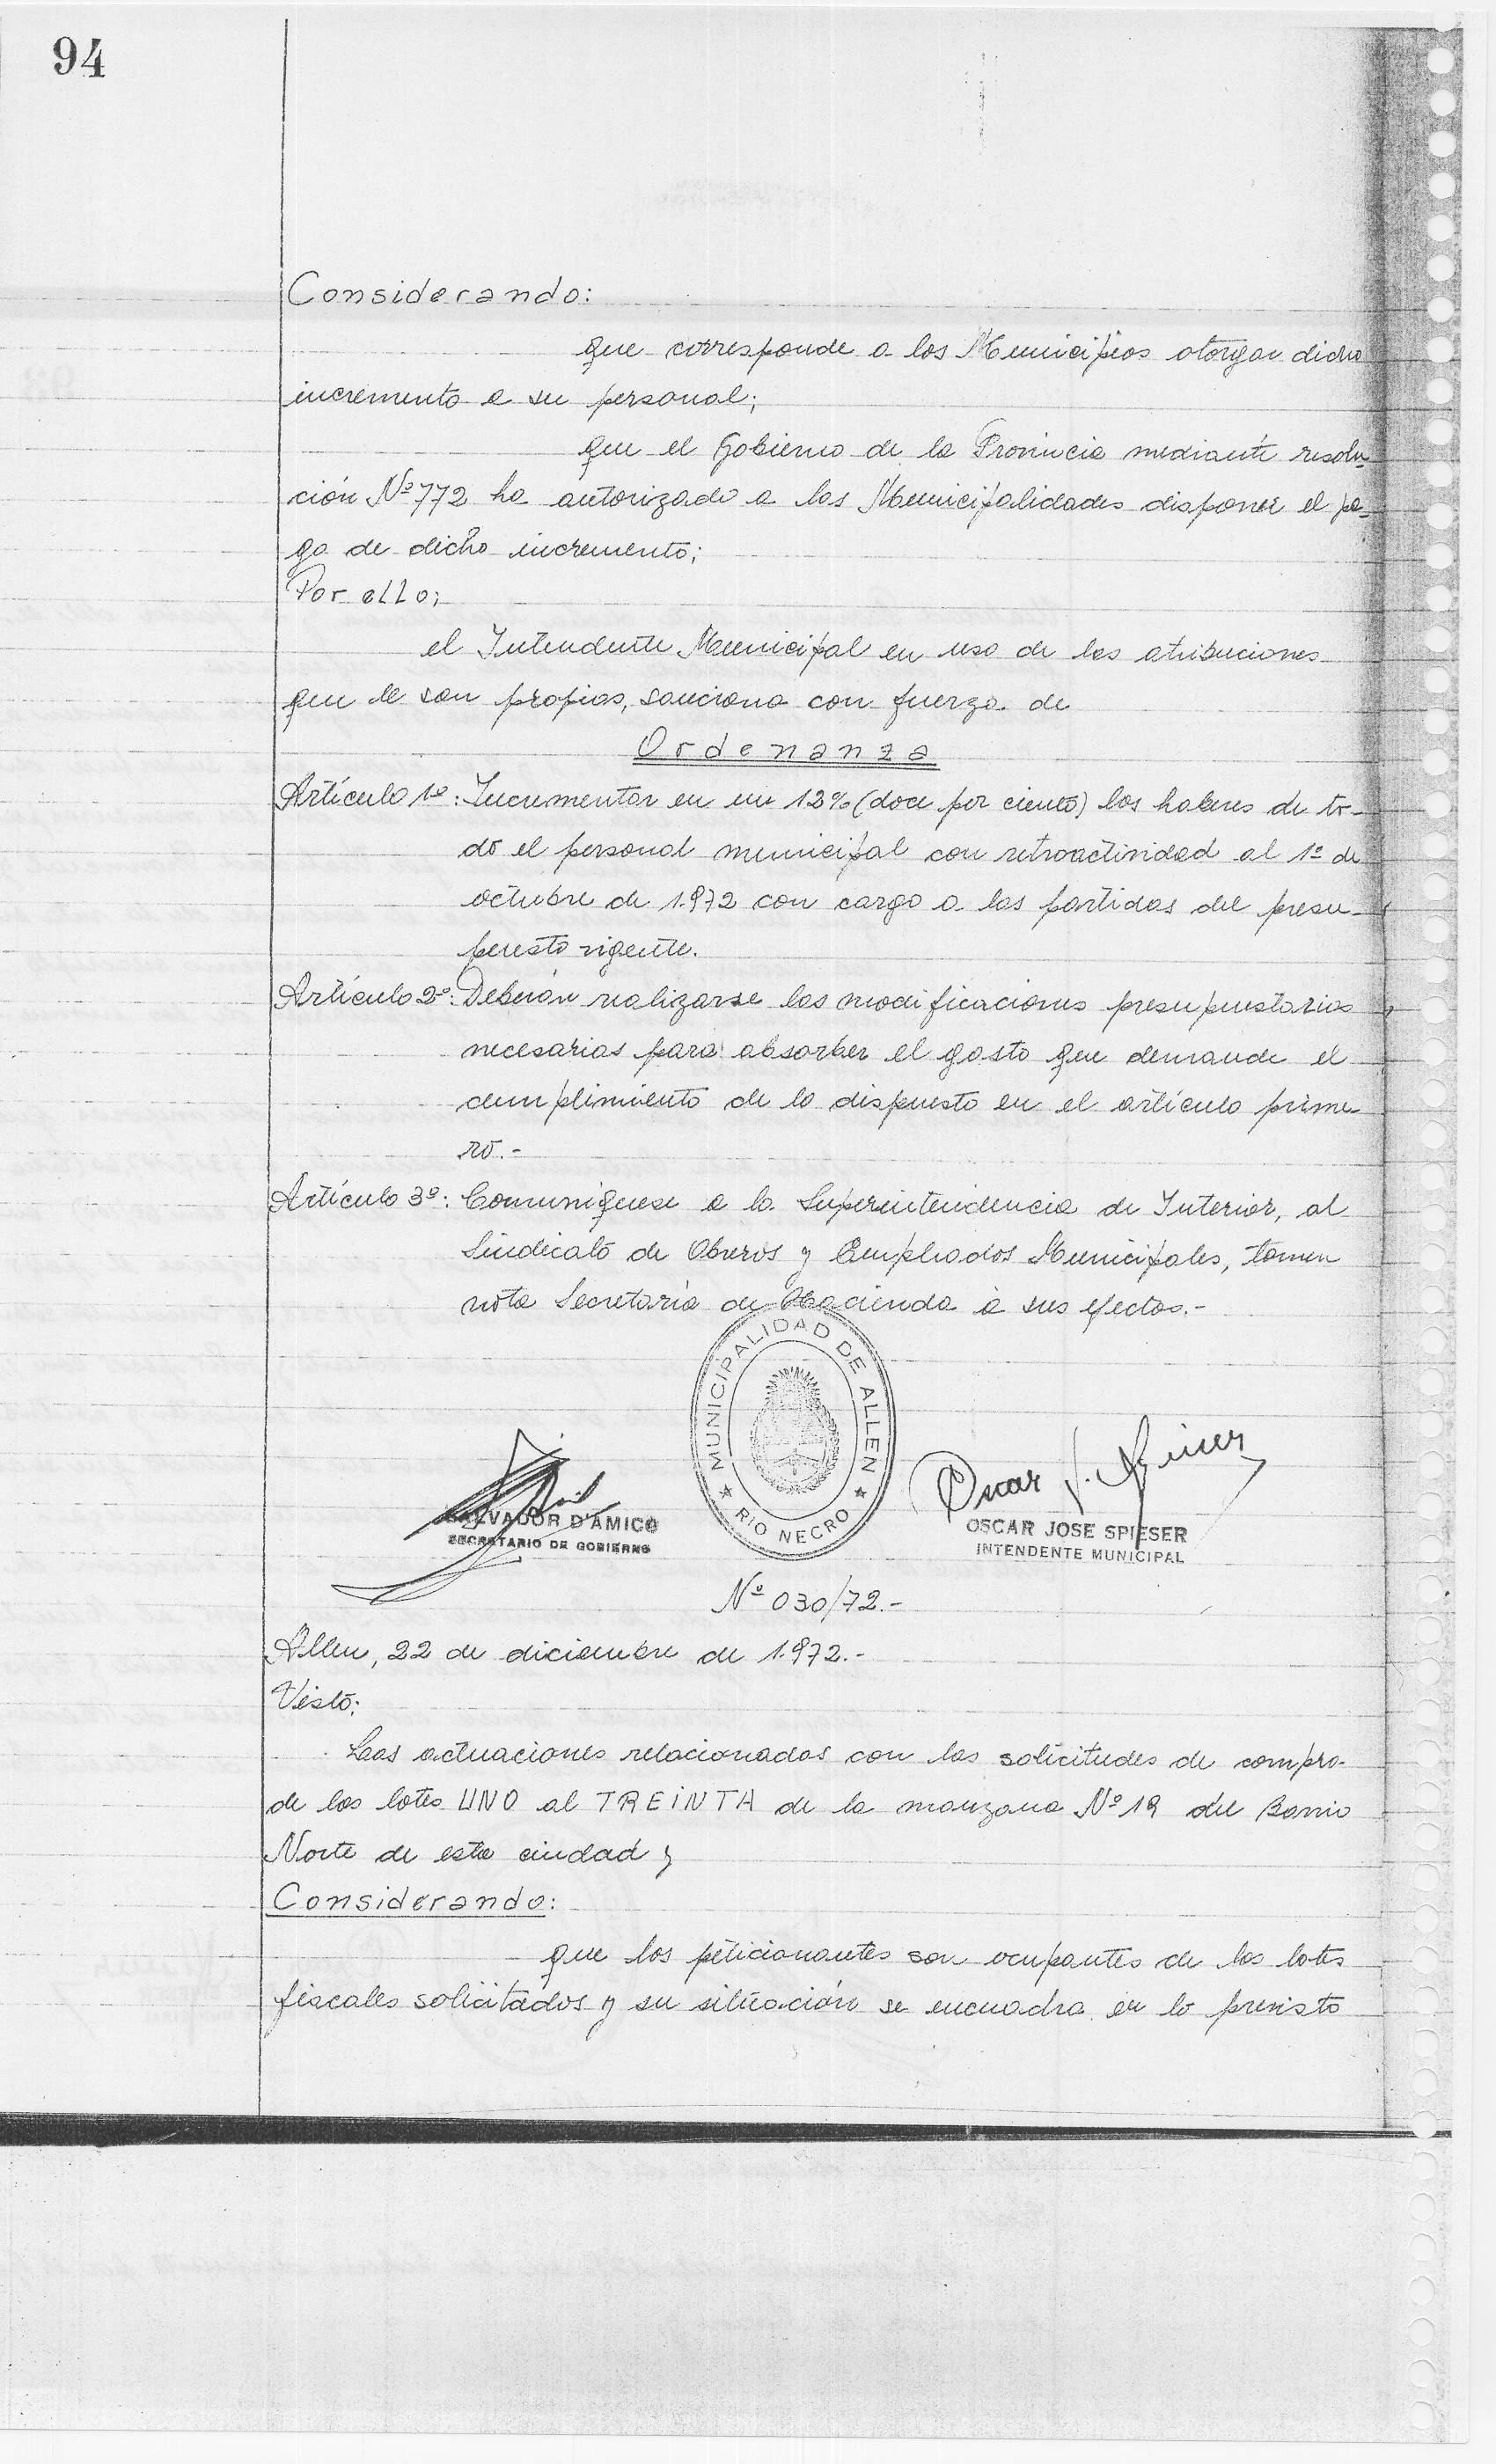 94
Considerando:
que corresponde a los Municipios otorgar dicho
incremento a su personal;
que el Gobierno de la Provincia mediante resolu-
ción Nº 772 ha autorizado a las Municipalidades disponer el pa-
go de dicho incremento;
Por ello;
el Intendente Municipal en uso de las atribuciones
que le son propias, sanciona con fuerza de
Ordenanza
Artículo 1º: Incrementar en un 12% (doce por ciento) los haberes de to-
do el personal municipal con retroactividad al 1º de
octubre de 1.972 con cargo a las partidas del presu-
puesto vigente.
Artículo 2º: Deberán realizarse las modificaciones presupuestarias
necesarias para absorber el gasto que demande el
cumplimiento de lo dispuesto en el artículo prime-
ro.-
Artículo 3º: Comuníquese a la Superintendencia de Interior, al
Sindicato de Obreros y Empleados Municipales, tomen
nota Secretaría de Hacienda a sus efectos.-
MUNICIPALIDAD DE ALLEN
★ RIO NECRO ★
Oscar J. Spieser
SALVADOR D'AMICO
SECRETARIO DE GOBIERNO
OSCAR JOSE SPIESER
INTENDENTE MUNICIPAL
Nº 030/72.-
Allen, 22 de diciembre de 1.972.-
Visto:
Las actuaciones relacionadas con las solicitudes de compra
de los lotes UNO al TREINTA de la manzana Nº 19 del Barrio
Norte de esta ciudad y
Considerando:
que los peticionantes son ocupantes de los lotes
fiscales solicitados y su situación se encuadra en lo previsto